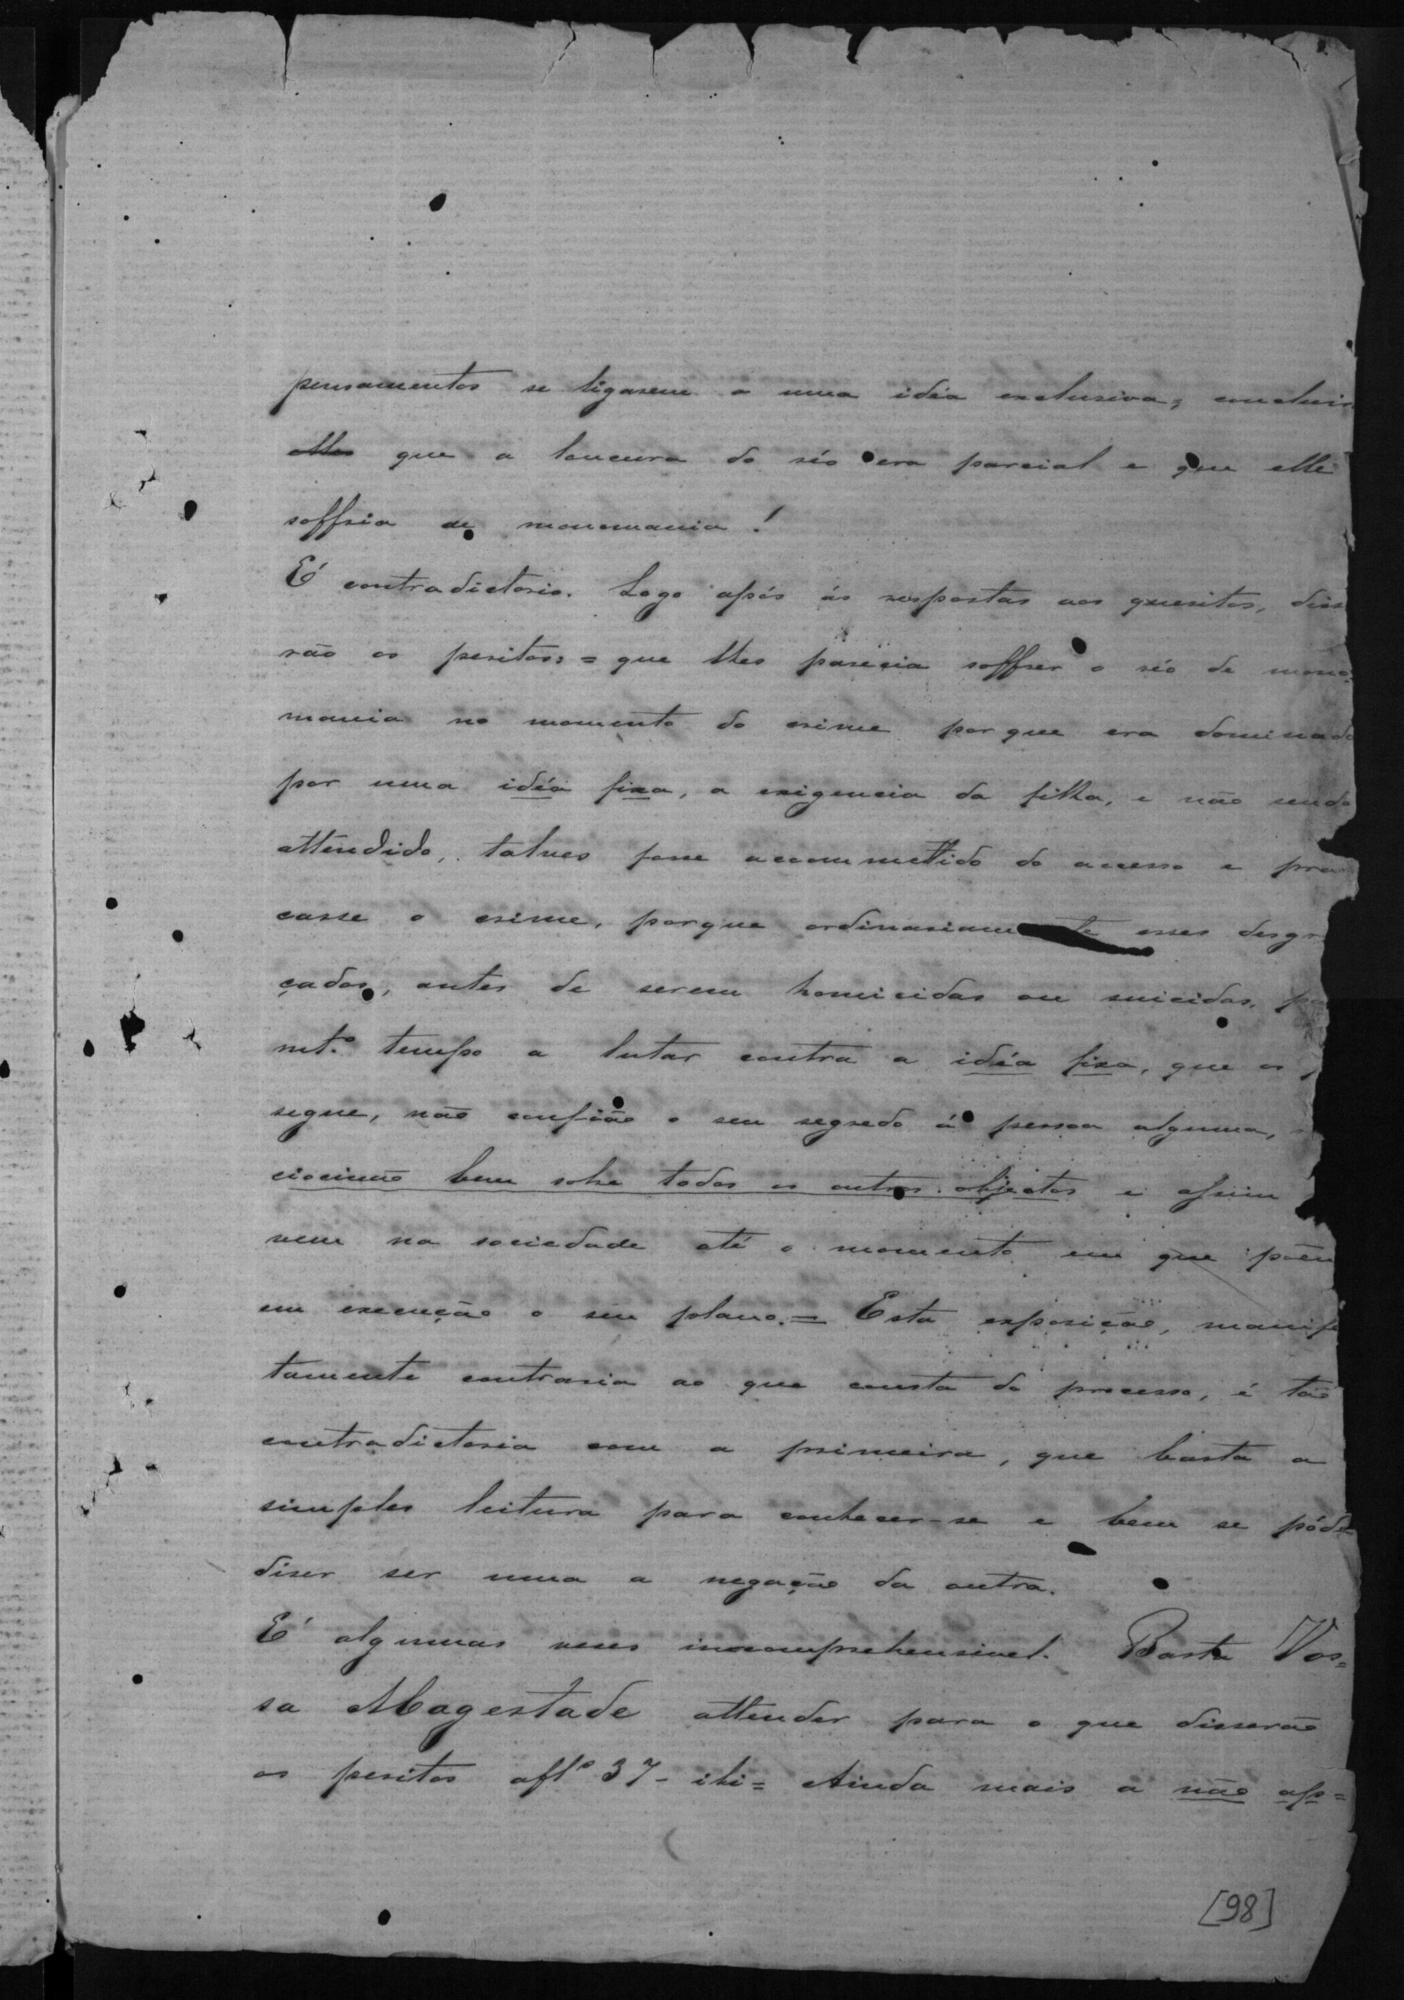 pensamentos se ligarem a uma idéa exclusiva; concluir
elles que a loucura do réo era parcial e que elle
soffria de monomania!
É contradictorio. Logo após ás respostas aos quesitos, disse
rão os peritos: = que lhes parecia soffrer o réo de mono
mania no momento do crime porque era dominado
por uma idéa fixa, a exigencia da filha, e não sendo
attendido, talves fosse accommettido do accesso e prati
casse o crime, porque ordinariamente esses desgr
çados, antes de serem homicidas ou suicidas,
mt.º tempo a lutar contra a idéa fixa, que os
segue, não confião o seu segredo á pessoa alguma,
ciocinão bem sobre todos os outros objectos e assim
vem na sociedade até o momento em que põem
em execução o seu plano. = Esta exposição, manifes
tamente contraria ao que consta do processo, é tão
contradictoria com a primeira, que basta a
simples leitura para conhecer-se e bem se póde
diser ser uma a negação da outra.
É algumas veses incomprehensivel. Basta Vos=
sa Magestade attender para o que disserão
os peritos a fl.ª 37 - ibi = Ainda mais a não ap=
[98]